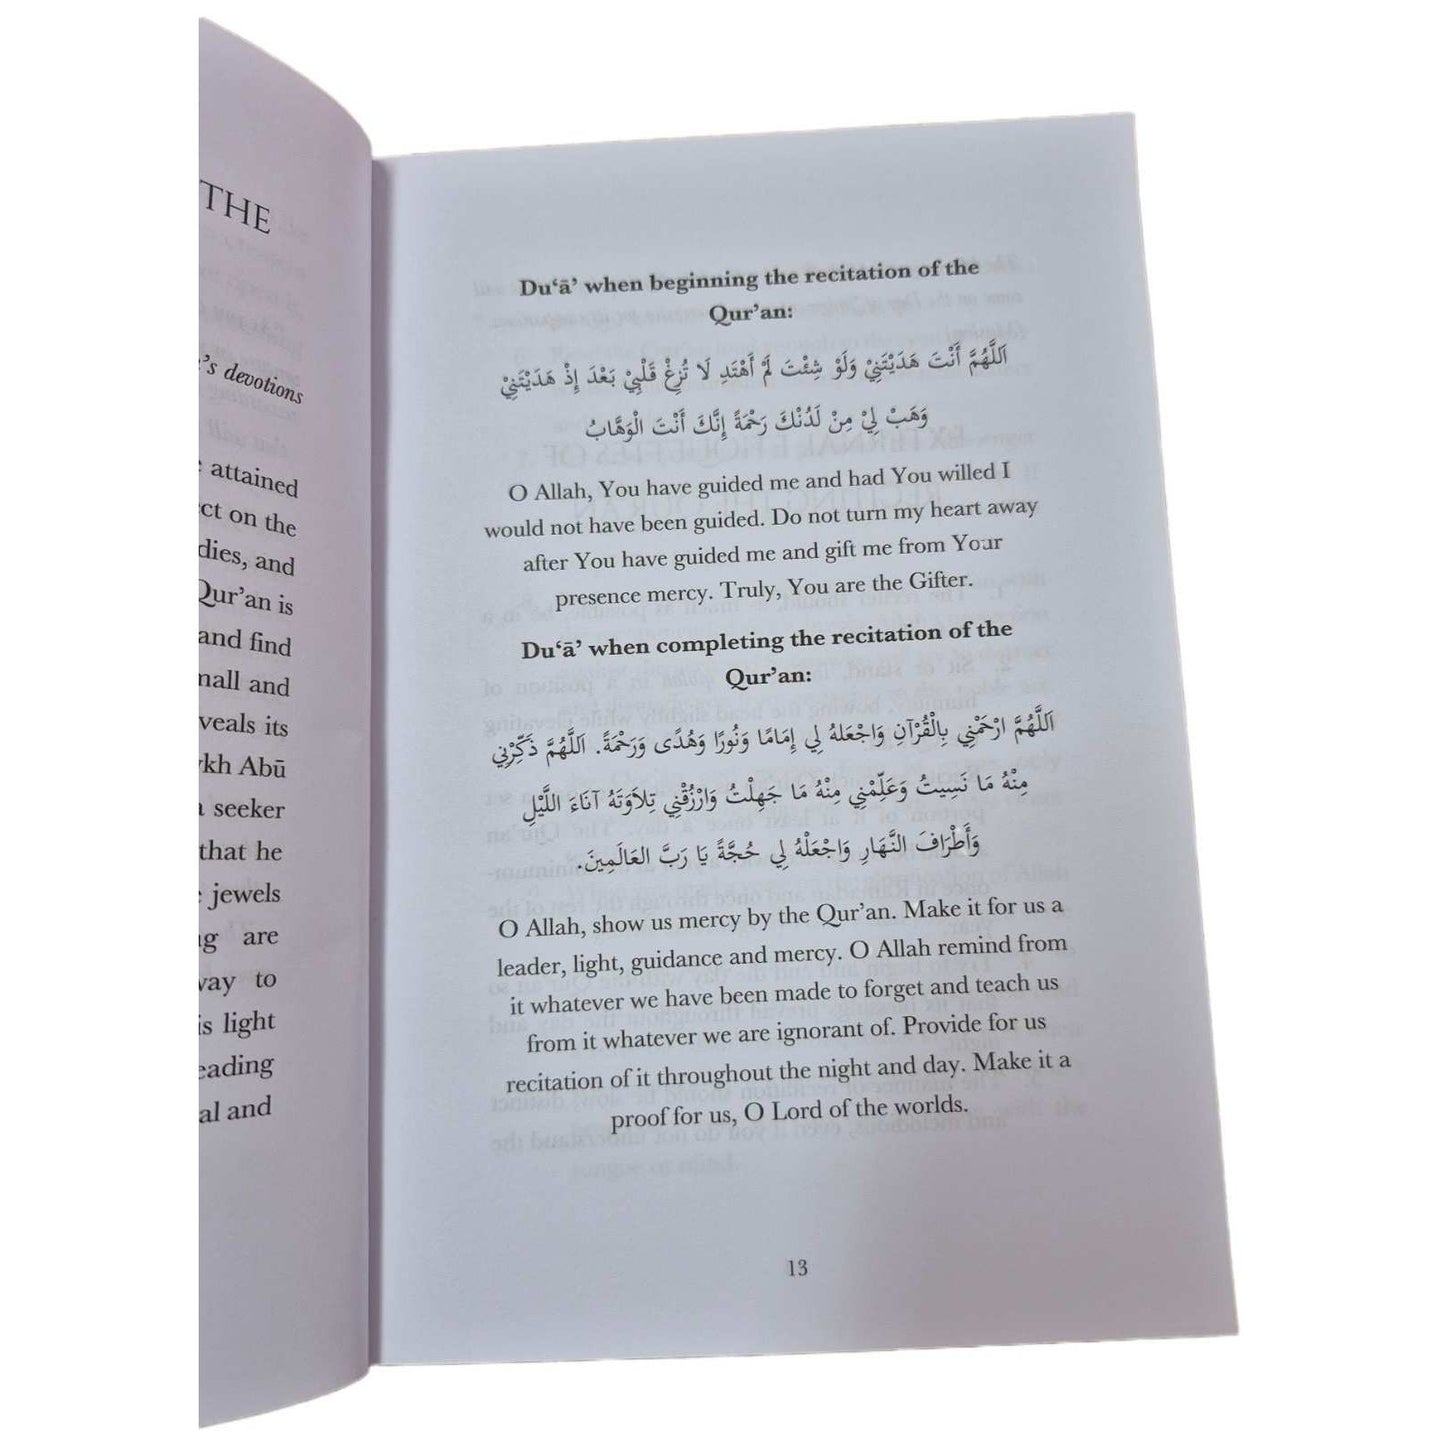 THE
's devotions
attained
ct on the
dies, and
Qur'an is
and find
mall and
veals its
ykh Abū
a seeker
that he
jewels
ng are
way to
is light
eading
al and
Du‘ā’ when beginning the recitation of the
Qur’an:
اَللَّهُمَّ أَنْتَ هَدَيْتَنِيْ وَلَوْ شِئْتَ لَمْ أَهْتَدِ لَا تُزِغْ قَلْبِيْ بَعْدَ إِذْ هَدَيْتَنِيْ
وَهَبْ لِيْ مِنْ لَدُنْكَ رَحْمَةً إِنَّكَ أَنْتَ الْوَهَّابُ
O Allah, You have guided me and had You willed I
would not have been guided. Do not turn my heart away
after You have guided me and gift me from Your
presence mercy. Truly, You are the Gifter.
Du‘ā’ when completing the recitation of the
Qur’an:
اَللَّهُمَّ ارْحَمْنِي بِالْقُرْآنِ وَاجْعَلهُ لِي إِمَامًا وَنُورًا وَهُدًى وَرَحْمَةً. اَللَّهُمَّ ذَكِّرْنِي
مِنْهُ مَا نَسِيتُ وَعَلِّمْنِي مِنْهُ مَا جَهِلْتُ وَارْزُقْنِي تِلاَوَتَهُ آنَاءَ اللَّيْلِ
وَأَطْرَافَ النَّهَارِ وَاجْعَلْهُ لِي حُجَّةً يَا رَبَّ العَالَمِينَ.
O Allah, show us mercy by the Qur’an. Make it for us a
leader, light, guidance and mercy. O Allah remind from
it whatever we have been made to forget and teach us
from it whatever we are ignorant of. Provide for us
recitation of it throughout the night and day. Make it a
proof for us, O Lord of the worlds.
13